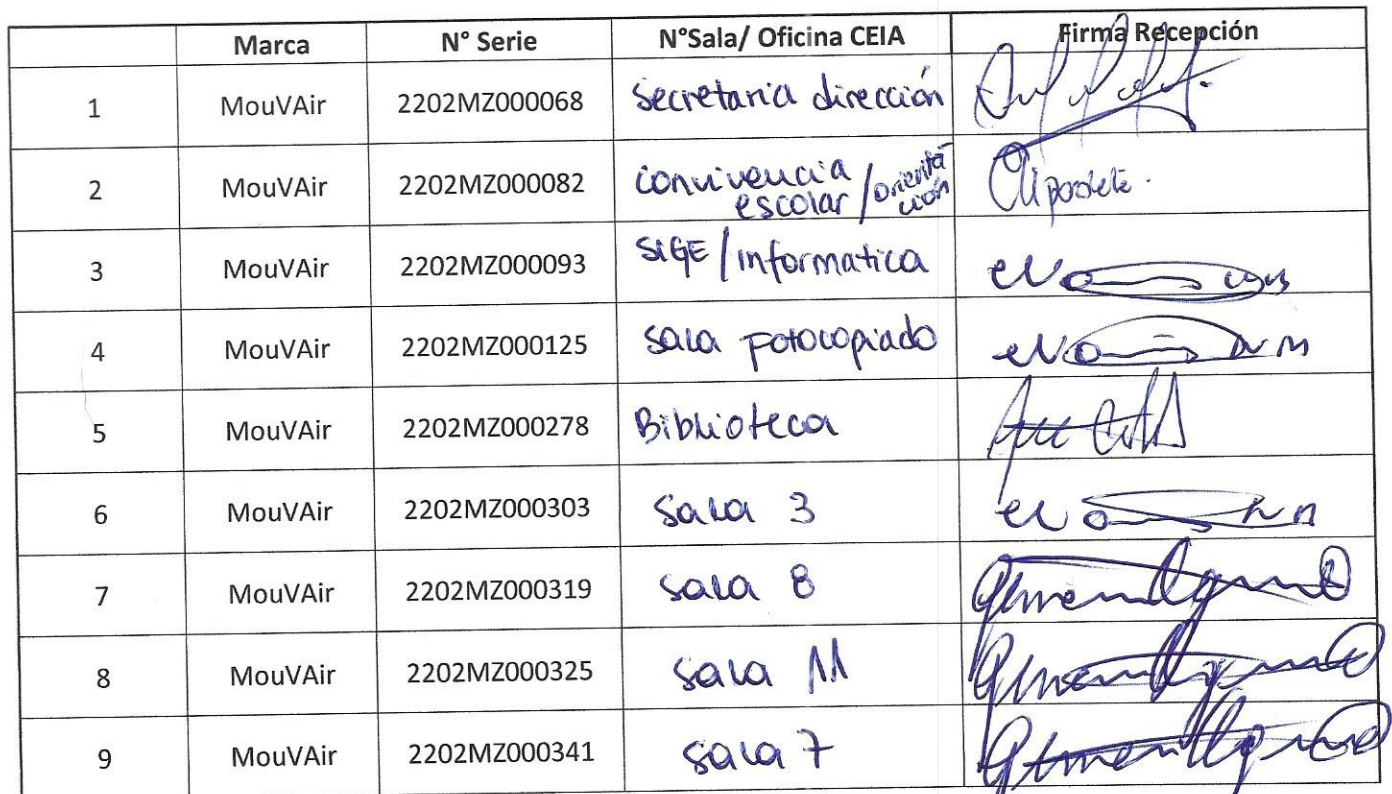 Marca N° Serie N°Sala/ Oficina CEIA Firma Recepción
1 MouVAir 2202MZ000068 Secretaria dirección
2 MouVAir 2202MZ000082 convivencia escolar / orientación
3 MouVAir 2202MZ000093 SIGE/informatica
4 MouVAir 2202MZ000125 sala Fotocopiado
5 MouVAir 2202MZ000278 Biblioteca
6 MouVAir 2202MZ000303 Sala 3
7 MouVAir 2202MZ000319 sala 8
8 MouVAir 2202MZ000325 sala 11
9 MouVAir 2202MZ000341 sala 7